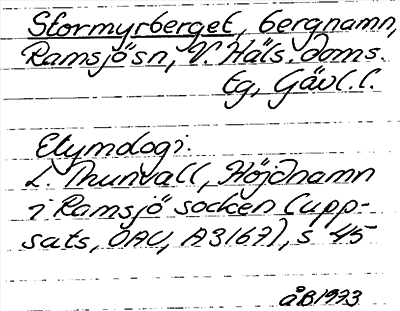 Stormyrberget, bergnamn,
Ramsjö sn, V. Häls. doms.
Eg, Gävl. l.
Etymologi:
L. Thunvall, Höjdnamn
i Ramsjö socken (upp-
sats, OAU, A3167), s 45
åB1973